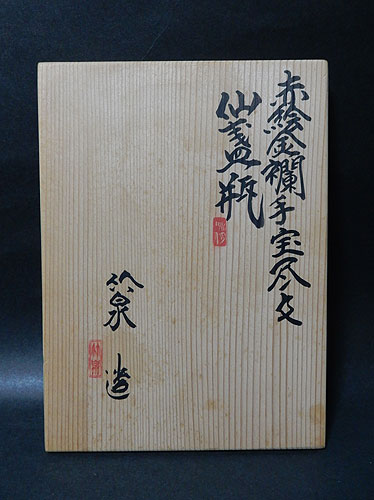 赤絵金襴手宝尽文
仙盞瓶
竹泉 造